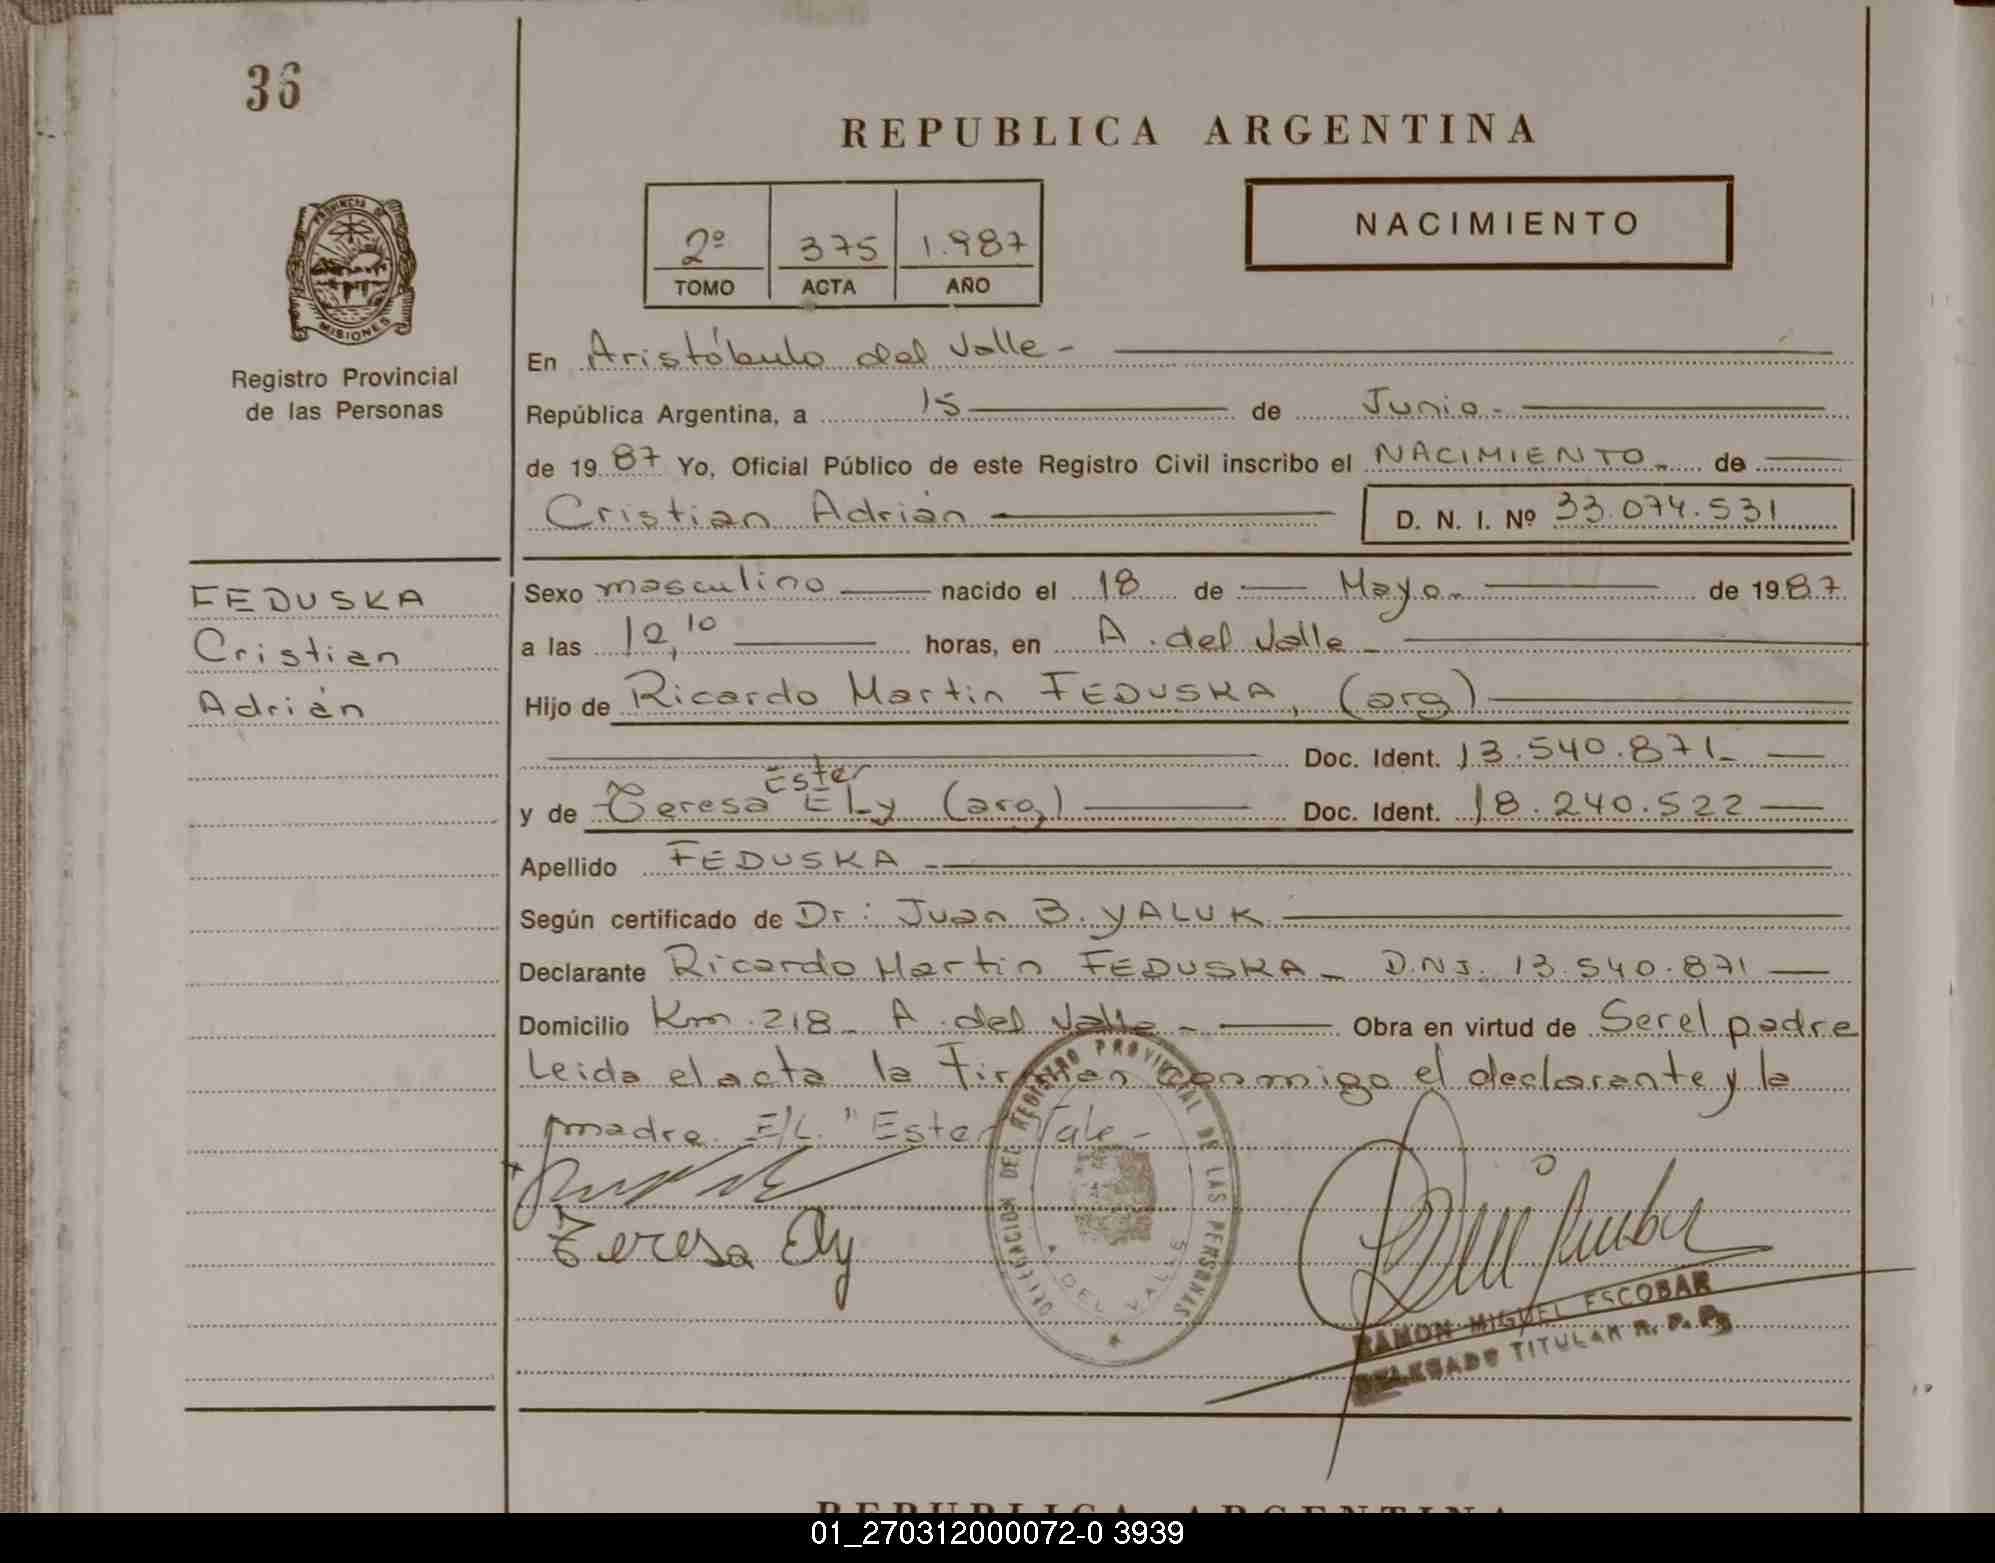 36
REPUBLICA ARGENTINA
NACIMIENTO
2º 375 1.987
TOMO ACTA AÑO
PROVINCIA DE
MISIONES
Registro Provincial
de las Personas
En Aristóbulo del Valle -
República Argentina, a 15 de Junio -
de 19 87 Yo, Oficial Público de este Registro Civil inscribo el NACIMIENTO - de
Cristian Adrián D. N. I. Nº 33.074.531
FEDUSKA
Cristian
Adrián
Sexo masculino nacido el 18 de Mayo - de 19 87
a las 10,10 horas, en A. del Valle -
Hijo de Ricardo Martin FEDUSKA, (arg)
Doc. Ident. 13.540.871 -
Ester
y de Teresa ELy (arg) Doc. Ident. 18.240.522
Apellido FEDUSKA -
Según certificado de Dr: Juan B. YALUK
Declarante Ricardo Martin FEDUSKA - D.N.I. 13.540.871
Domicilio Km. 218 - A. del Valle - Obra en virtud de Ser el padre
Leida el acta la Firman conmigo el declarante y la
madre. E/L. "Ester" Vale -
Teresa Ely
DELEGACION DEL REGISTRO PROVINCIAL DE LAS PERSONAS
A. DEL VALLE
RAMON MIGUEL ESCOBAR
DELEGADO TITULAR R. P. P.
REPUBLICA ARGENTINA
01_270312000072-0 3939